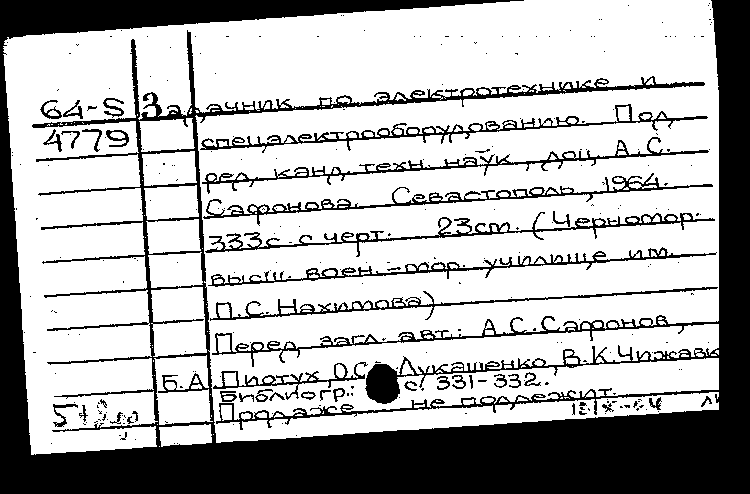 64-S Задачник по электротехнике и
4779 спецэлектрооборудованию. Под
ред. канд. техн. наук, доц. А.С.
Сафонова. Севастополь, 1964.
333с. с черт. 23см. (Черномор.
высш. воен.=мор. училище им.
П.С. Нахимова)
Перед загл. авт.: А.С. Сафонов,
Б.А. Пиотух, О.С. Лукашенко, В.К. Чижавк
Библиогр.: с. 331-332.
Продаже не подлежит.